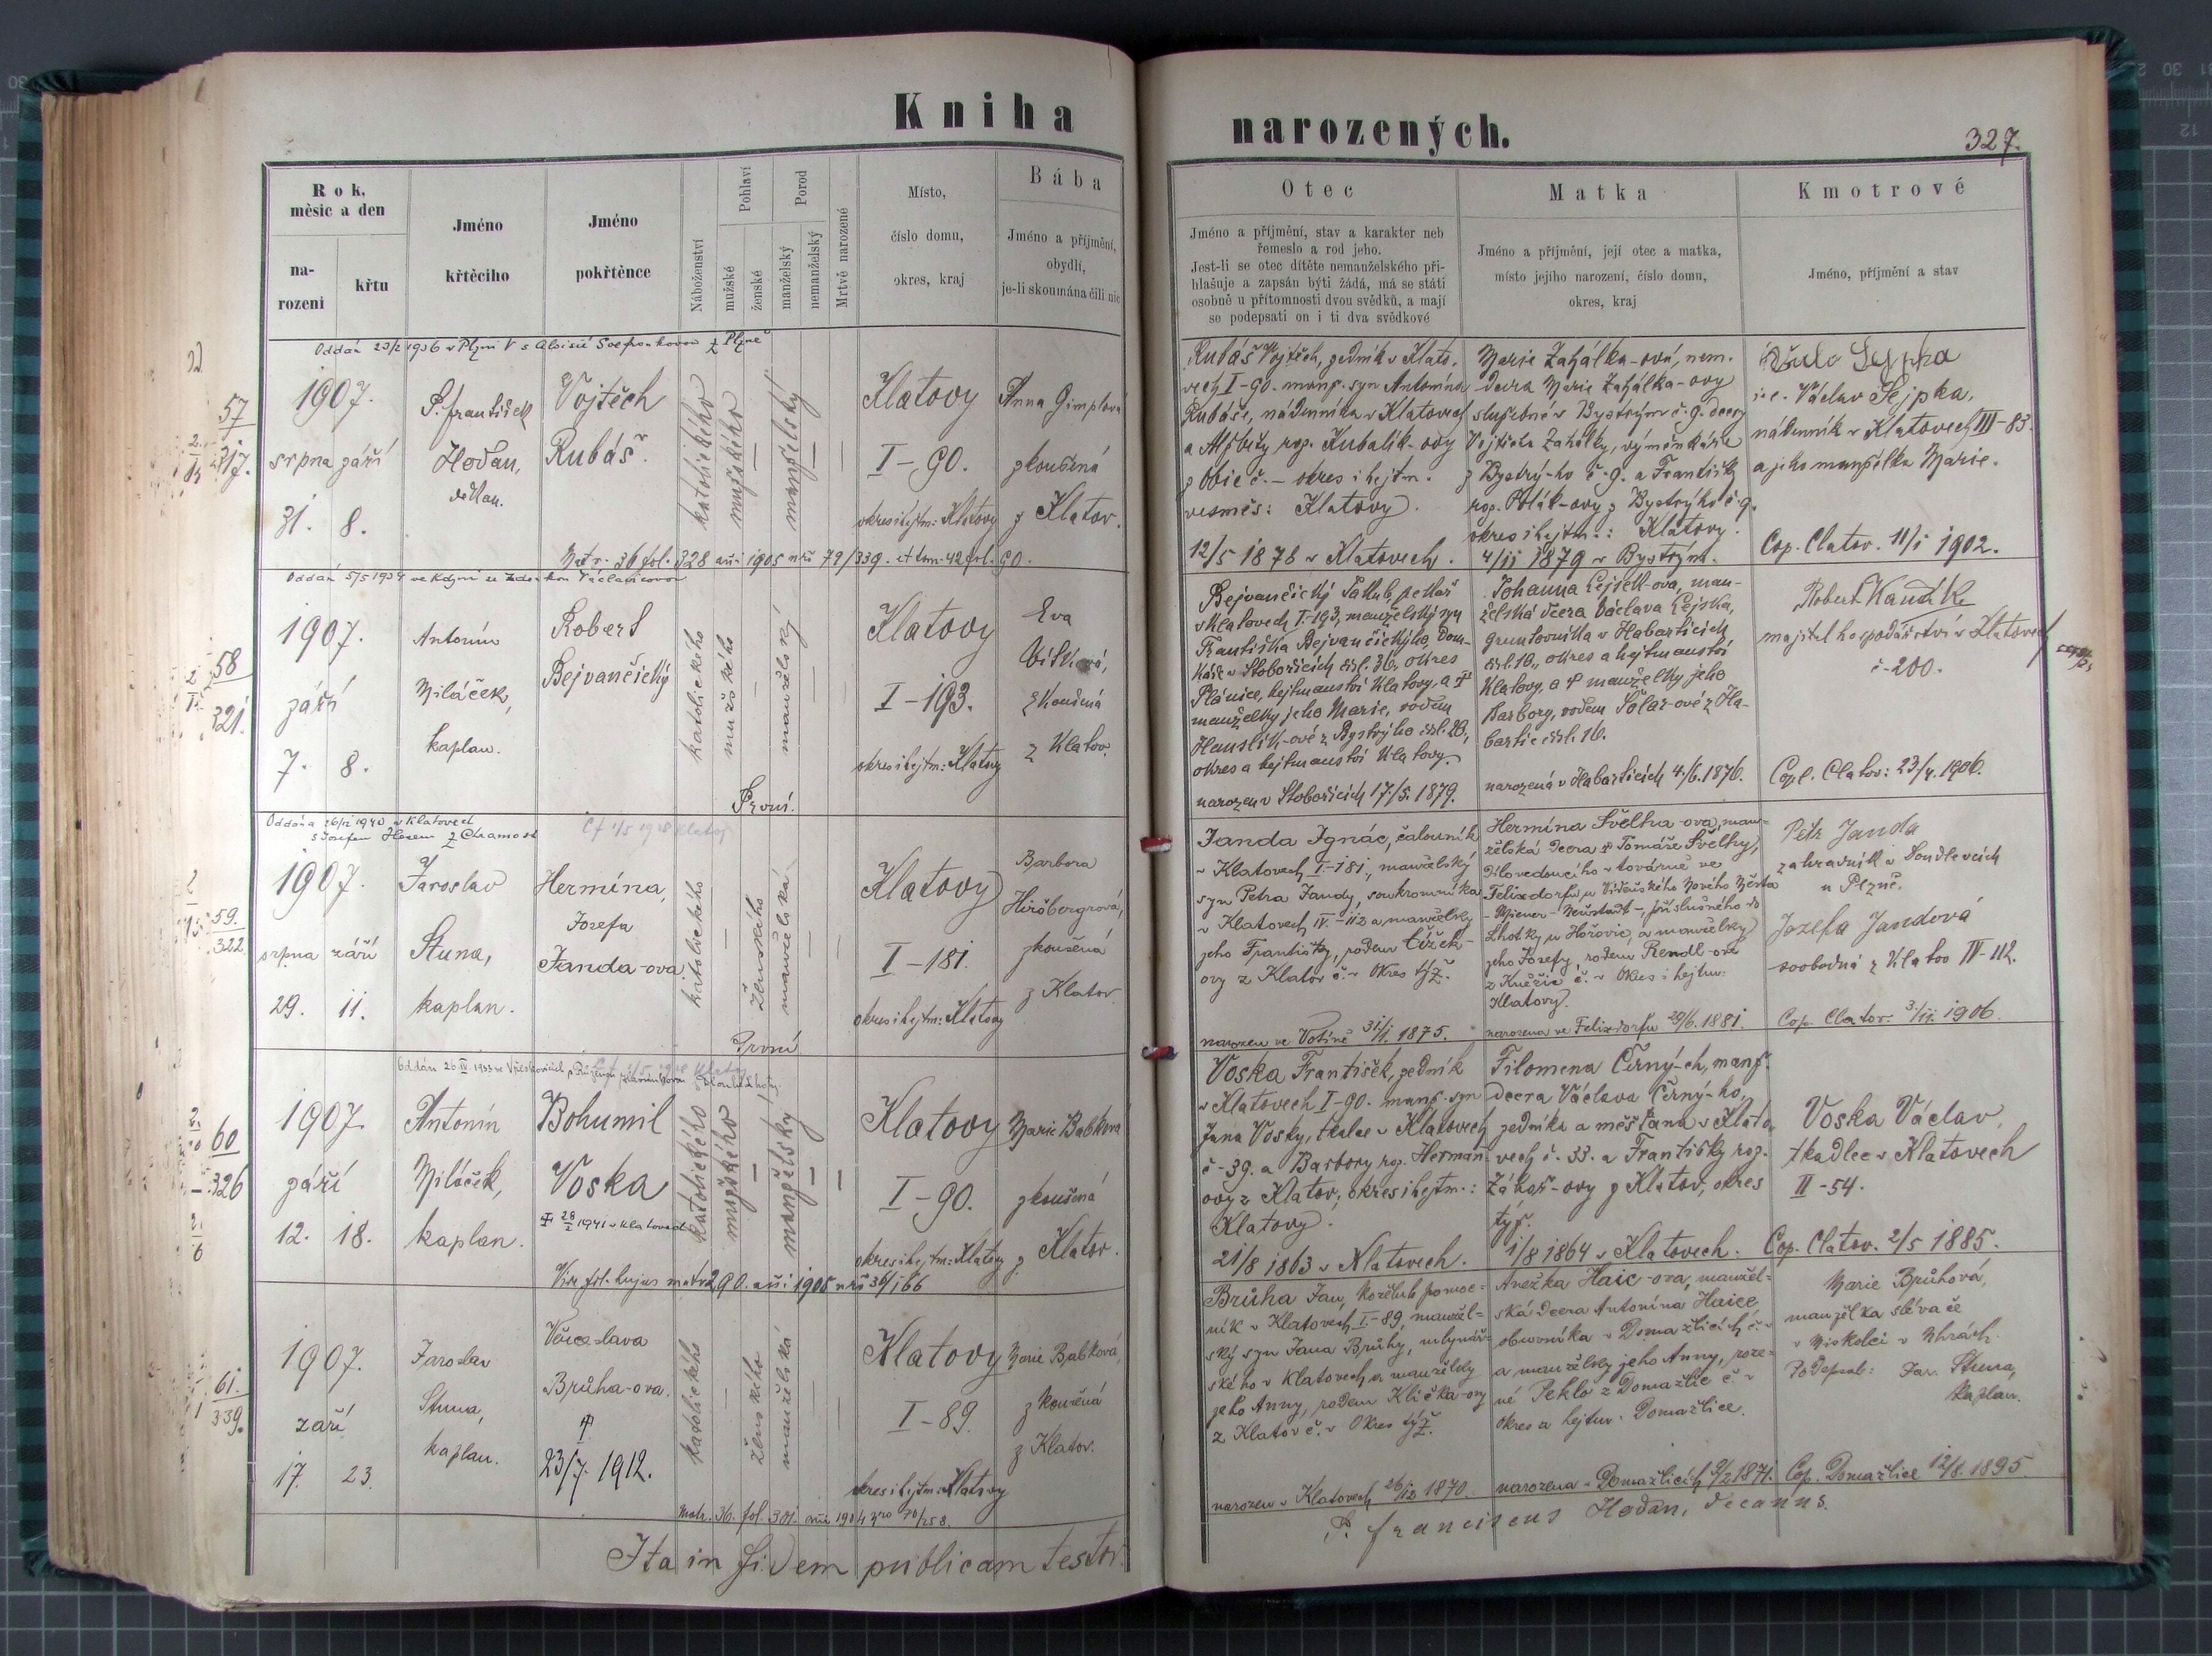 Kniha
narozených.
327.
Rok,
měsíc a den
na-
rozeni
křtu
Jméno
křtěcího
Jméno
pokřtěnce
Náboženství
Pohlaví
mužské
ženské
Porod
manželský
nemanželský
Mrtvě narozené
Místo,
číslo domu,
okres, kraj
Bába
Jméno a příjmění,
obydlí,
je-li skoumána čili nic
Otec
Jméno a příjmění, stav a karakter neb
řemeslo a rod jeho.
Jest-li se otec dítěte nemanželského při-
hlašuje a zapsán býti žádá, má se státi
osobně u přítomnosti dvou svědků, a mají
se podepsati on i ti dva svědkové
Matka
Jméno a příjmění, její otec a matka,
místo jejího narození, číslo domu,
okres, kraj
Kmotrové
Jméno, příjmění a stav
57
317.
1907.
srpna září
31. 8.
P. František
Hoďan,
děkan.
Vojtěch
Rubáš.
katolického
mužského
manželský
Klatovy
I-90.
okres i hejtm: Klatovy
Anna Gimplová
zkoušená
z Klatov.
Matr. 36 fol. 328 anni 1905 nro 79/339. et tom. 42 fol. 90.
Rubáš Vojtěch, zedník v Klato-
vech I-90. manž. syn Antonína
Rubáše, nádenníka v Klatovech
a Alžběty roz. Kubalík-ovy
z Obic č. - okres i hejtm.
vesměs: Klatovy.
12/5 1878 v Klatovech.
Marie Zahálka-ová, nem.
dcera Marie Zahálka-ovy
služebné v Bystrým č. 9. dcery
Vojtěcha Zahálky, výměnkáře
z Bystrý-ho č. 9. a Františky
roz. Polák-ovy z Bystrýho č. 9.
okres i hejtm.: Klatovy.
4/11 1879 v Bystrým.
i. e. Václav Sejpka,
nádenník v Klatovech III-83.
a jeho manželka Marie.
Cop. Clatov. 11/1 1902.
58
321.
1907.
září
7. 8.
Antonín
Miláček,
kaplan.
Robert
Bejvančický
katolického
mužského
manželský
První.
Klatovy
I-193.
okres i hejtm: Klatovy
Eva
Vítková,
zkoušená
z Klatov.
Bejvančický Jakub, pekař
v Klatovech I-193, manželský syn
Františka Bejvančického, dom-
káře v Slobořicích čsl. 36, okres
Plánice, hejtmanství Klatovy, a
manželky jeho Marie, rodem
Hauslík-ové z Bystrýho čsl. 20,
okres a hejtmanství Klatovy.
narozen v Slobořicích 17./5. 1879.
Johanna Lejsek-ova, man-
želská dcera Václava Lejska,
gruntovníka v Habarticích
čsl. 16., okres a hejtmanství
Klatovy, a manželky jeho
Barbory, rodem Solar-ové z Ha-
bartic čsl. 16.
narozená v Habarticích 4./6. 1876.
Robert Kanzik
majitel hospodářství v Klatovech
č. 200.
Copl. Clatov: 23/4. 1906.
Oddána 26/12 1940 v Klatovech
59.
322.
1907.
srpna září
29. 11.
Jaroslav
Stuna,
kaplan.
Hermína,
Josefa
Janda-ova
katolického
ženského
manželská
První
Klatovy
I-181.
okres i hejtm: Klatovy
Barbora
Hiršbergrová,
zkoušená
z Klatov
Janda Ignác, čalouník
v Klatovech I-181, manželský
syn Petra Jandy, soukromníka
v Klatovech IV-112 a manželky
jeho Františky, rodem Čížek-
ovy z Klatov č. v Okres týž.
narozen ve Votíně 31/1. 1875.
Hermína Světlka-ova, man-
želská dcera Tomáše Světlky,
dílovedoucího v továrně ve
Felixdorfu, u Vídeňského Nového Města
- Wiener-Neustadt -, příslušného do
Lhotky u Hořovic, a manželky
jeho Josefy, rodem Rendl-ové
z Kněžic č. v Okres i hejtm:
Klatovy.
narozena ve Felixdorfu 29/6. 1881.
Petr Janda
zahradník v Doudlevcích
u Plzně.
Josefa Jandová
svobodná z Klatov IV-112.
Cop. Clatov: 3./11. 1906.
60
326
1907
září
12. 18.
Antonín
Miláček,
kaplan.
Bohumil
Voska
28/2 1941 v Klatovech
katolického
mužského
manželský
Klatovy
I-90.
okres i hejtm: Klatovy
Marie Babková
zkoušená
z Klatov.
Vide fol. hujus matr. 290. anni 1905 nro 36/166
Voska František, zedník
v Klatovech I-90. manž. syn
Jana Vosky, tkalce v Klatovech
č. 39. a Barbory roz. Heřman-
ovy z Klatov, okres i hejtm.:
Klatovy.
21/8 1863 v Klatovech.
Filomena Černý-ch, manž.
dcera Václava Černý-ho,
zedníka a měšťana v Klato-
vech č. 33. a Františky roz.
Zákoř-ovy z Klatov, okres
týž.
1/8 1864 v Klatovech.
Voska Václav,
tkadlec v Klatovech
II-54.
Cop. Clatov. 2/5 1885.
61.
339.
1907.
září
17. 23.
Jaroslav
Stuna,
kaplan.
Věnceslava
Brůha-ova.
23/7. 1912.
katolického
ženského
manželská
Klatovy
I-89.
okres i hejtm: Klatovy
Marie Babková,
zkoušená
z Klatov.
Matr. 36. fol. 301. anni 1904 nro 70/258.
Brůha Jan, koželuh pomoc-
ník v Klatovech I-89, manžel-
ský syn Jana Brůhy, mlynář-
ského v Klatovech a manželky
jeho Anny, rodem Klička-ovy
z Klatov č. v Okres týž.
narozen v Klatovech 26/12 1870.
Anežka Haic-ova, manžel-
ská dcera Antonína Haice
obuvníka v Domažlicích č. v
a manželky jeho Anny, roze-
né Pehlo z Domažlic č. v
okres a hejtm: Domažlice.
narozena v Domažlicích 9/2 1871.
Marie Brůhová,
manželka slévače
v Miskolci v Uhrách.
Podepsal: Jar. Stuna,
kaplan.
Cop. Domažlice 12/8. 1895.
Ita in fidem publicam testor.
P. Franciscus Hoďan, decanus.